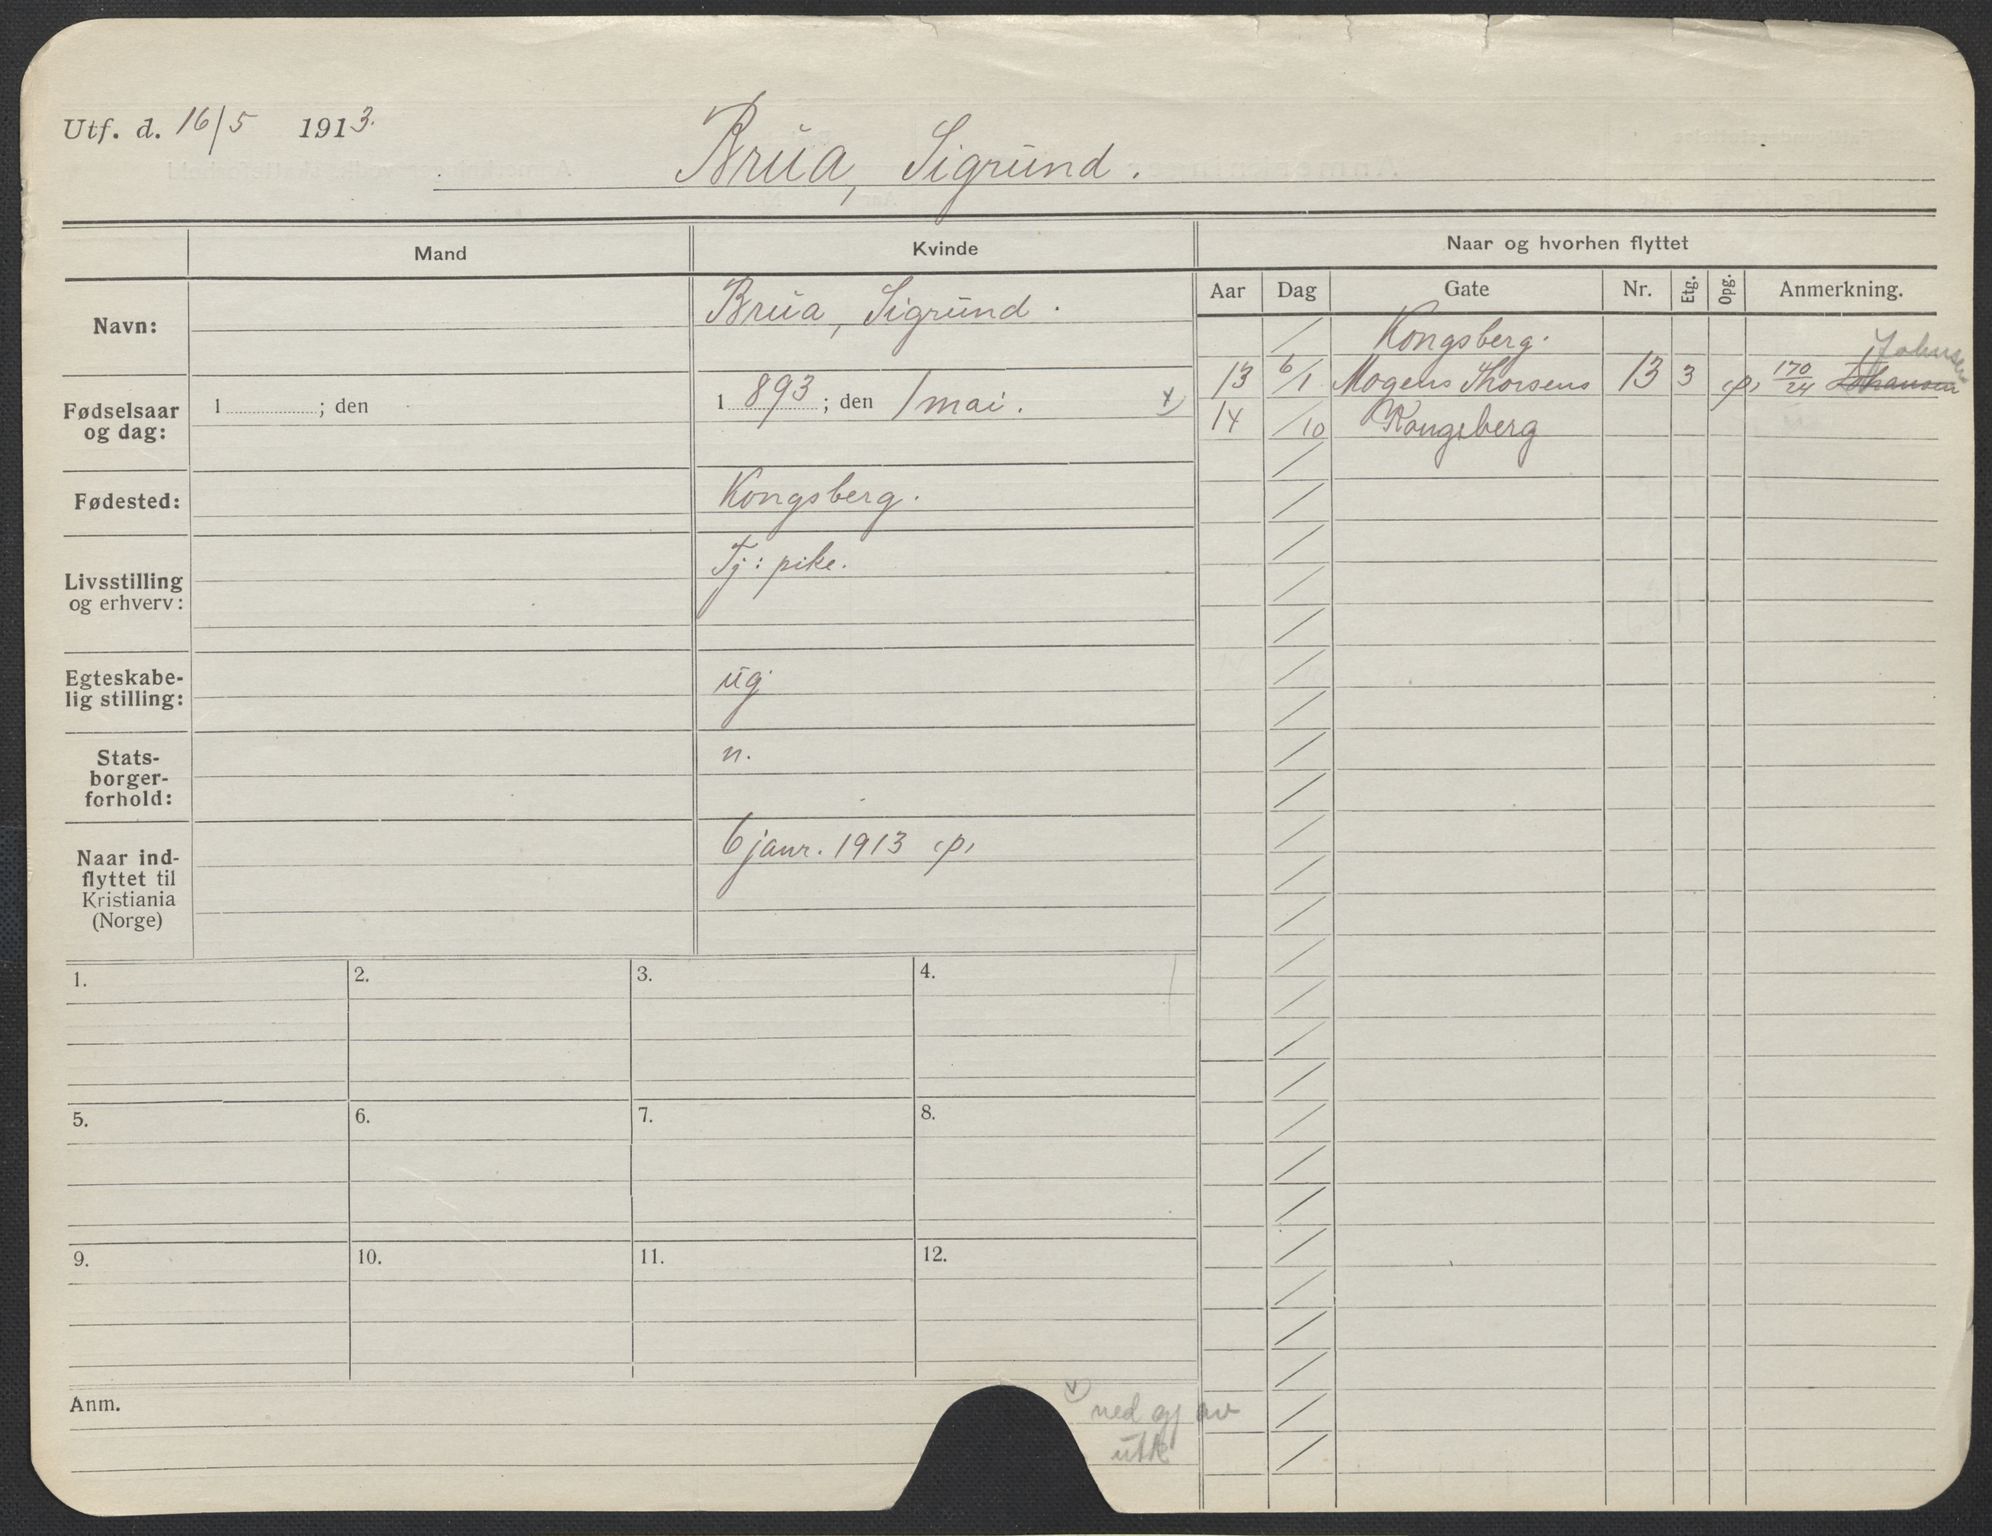 Utf. d. 16/5 1913.
Brua, Sigrund.
Mand
Kvinde
Naar og hvorhen flyttet
Aar Dag Gate Nr. Etg. Opg. Anmerkning.
Navn:
Brua, Sigrund.
Kongsberg.
13 6/1 Mogens Thorsens 13 3 (p) 170/24 Johansen Johnsen
14 /10 Kongsberg
Fødselsaar
og dag:
1 ; den
1 893 ; den 1 mai. x)
Fødested:
Kongsberg.
Livsstilling
og erhverv:
Tj: pike.
Egteskabe-
lig stilling:
ug.
Stats-
borger-
forhold:
n.
Naar ind-
flyttet til
Kristiania
(Norge)
6 janr. 1913 (p)
1. 2. 3. 4.
5. 6. 7. 8.
9. 10. 11. 12.
Anm.
x) ned av